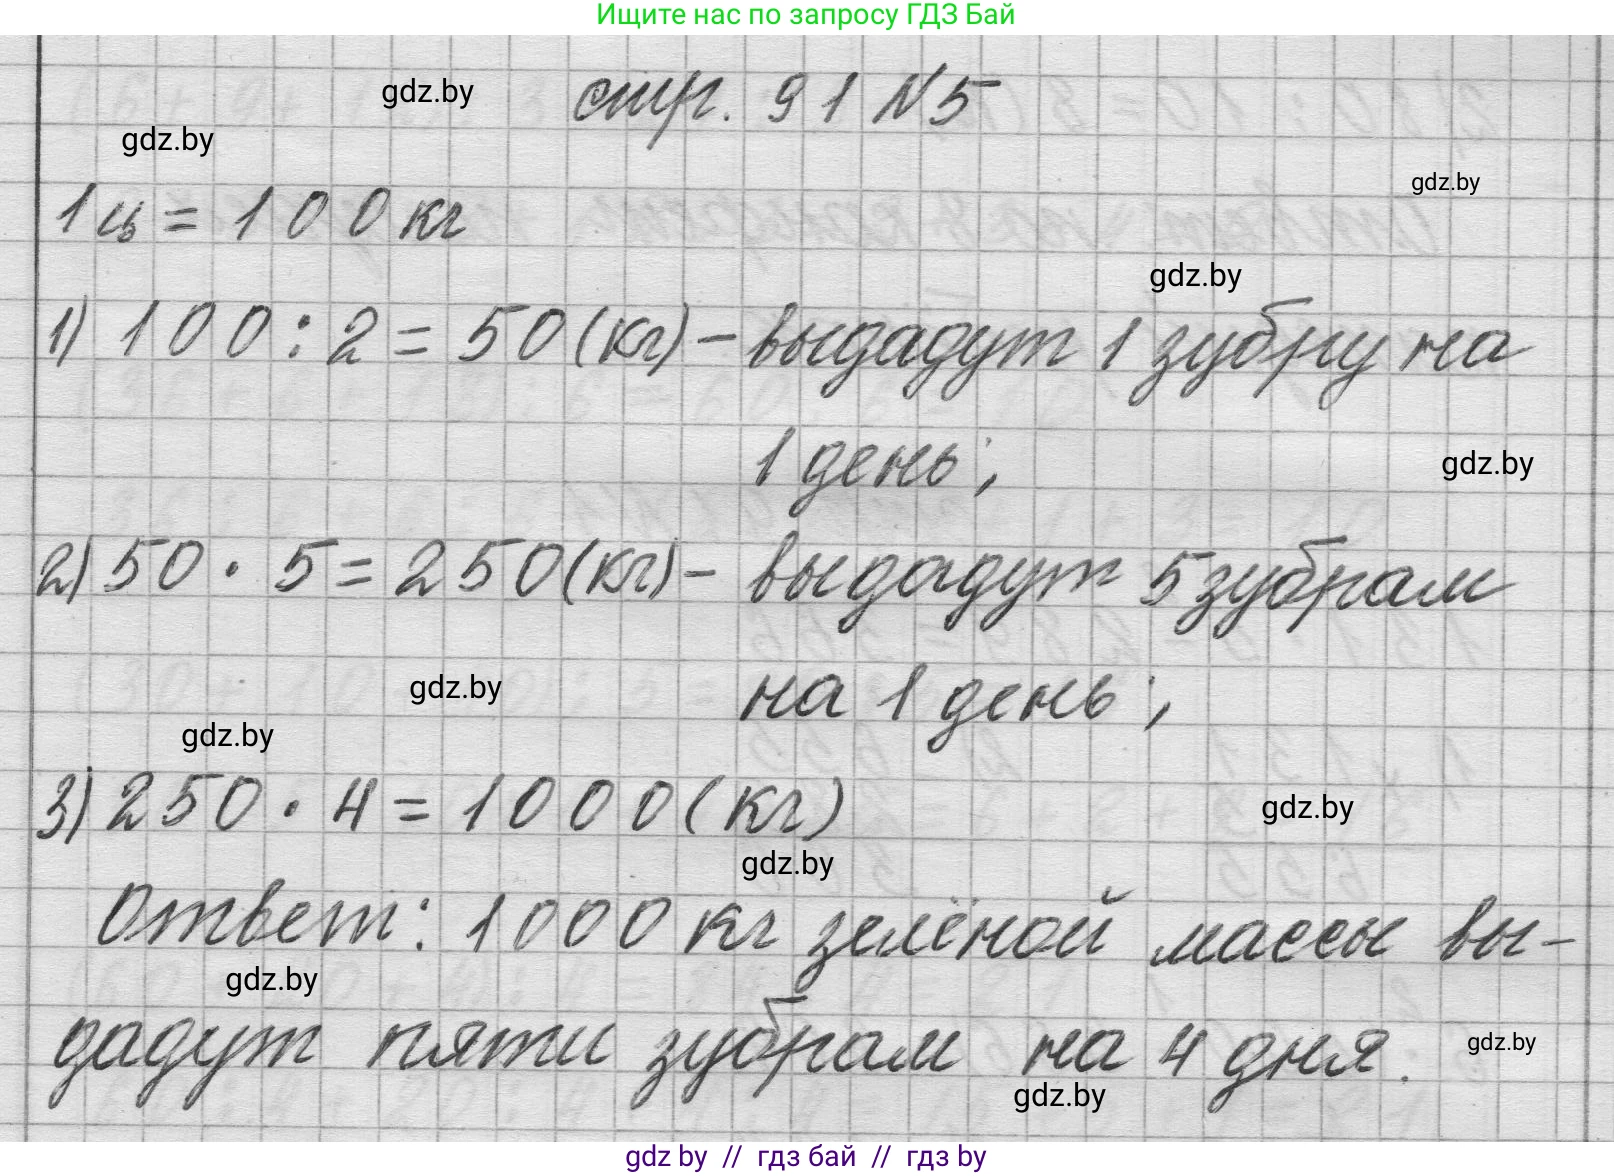 Ищите нас по запросу ГДЗ Бай
gdz.by стр. 91 №5
gdz.by
gdz.by
1ц = 100 кг
gdz.by
1) 100 : 2 = 50 (кг) – выдадут 1 зубру на
1 день;
gdz.by
2) 50 · 5 = 250 (кг) – выдадут 5 зубрам
на 1 день;
gdz.by
gdz.by
3) 250 · 4 = 1000 (кг)
gdz.by
gdz.by
Ответ: 1000 кг зелёной массы вы-
gdz.by
дадут пяти зубрам на 4 дня.
gdz.by
gdz.by
gdz by // гдз бай // гдз by